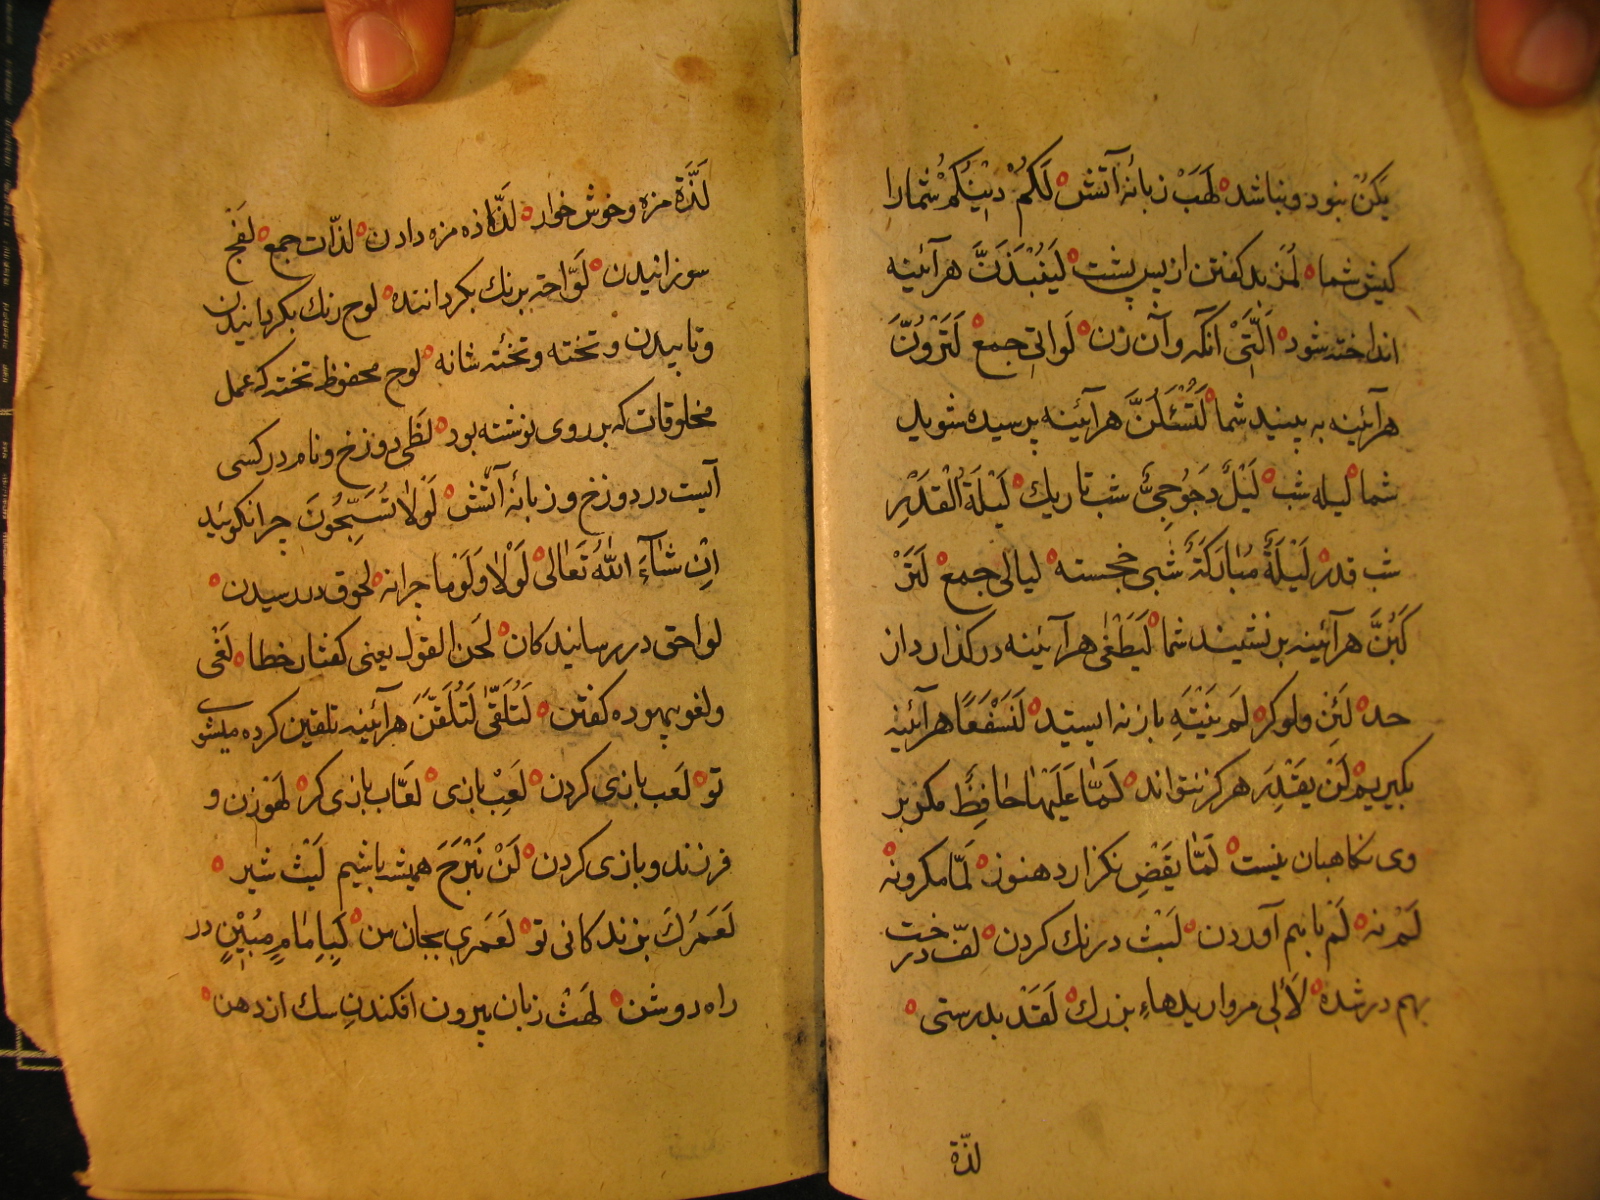 یَکُنْ نبود و نباشد لَهَبْ زبانهٔ آتش لَکُمْ دِیْنُکُمْ شما را
کیش شما لَمْز بد کفتن از پس پشت لَیُنْبَذَنَّ هرآئینه
انداخته شود اَلَّتِیْ آنکه و آن زن لَوَاتی جمع لَتَرَوُنَّ
هرآئینه به بینید شما لَتُسْئَلُنَّ هرآئینه پرسیده شوید
شما لیله شب لَیْلٌ دَجُوجِیٌّ شب تاریك لَیْلَةُ الْقَدْرِ
شب قدر لَیْلَةٌ مُبَارَکَةٌ شبی خجسته لیالی جمع لَتَرْ
کَبُنَّ هرآئینه بر نشینید شما لَیَطْغٰی هرآئینه در کذارد از
حد لَئِن ولوکر لَم یَنْتَهِ باز نه ایستد لَنَسْفَعًا هرآئینه
بکیریم لَنْ یَقْدِرَ هرکز نتواند لَمَّا عَلَیْهَا حَافِظٌ مکر بر
وی نکاهبان نیست لَمَّا یَقْضِ نکزارد هنوز لَمَّا مکرونه
لَمْ نه لَم باهم آوردن لَبْث درنك کردن لَفّ درخت
بهم در شده لَأٰلی مرواریدهاء بزرك لَقَدْ بدرستی
لذّة
لَذَّة مزه و خوش خوار لَذَّاذه مزه دادن لذّات جمع لَفْح
سوزانیدن لَوَّاحته برنك بکرداننده لوح رنك بکردانیدن
و تابیدن و تخته و تختهٔ شانه لوح محفوظ تخته که عمل
مخلوقات که بر روی نوشته بود لَظٰی دوزخ و نام درکسی
آیست در دوزخ و زبانهٔ آتش لَوْلاَ تُسَبِّحُونَ چرا نکوئید
اِنْ شَآءَ اللّٰهُ تَعَالٰی لَوْلاَ و لَوْما چرا نه لحوق در رسیدن
لواحق در رسانیدکان لَحْن القول یعنی کفتار خطا لَغْی
ولغو بیهوده کفتن لَتُلَقّٰی لَتُلَقَّنَ هرآئینه تلقین کرده میشوی
تو لَعْب بازی کردن لَعِبْ بازی لَعَّاب بازی کر لَهْو زن و
فرزند و بازی کردن لَنْ نَبْرَحَ همیشه باشیم لَیْث شیر
لَعَمْرُكَ بزندکانی تو لَعَمْرِی بجان من لَبِاِمَامٍ مُبِیْنٍ در
راه روشن لَهْث زبان بیرون افکندن سك از دهن